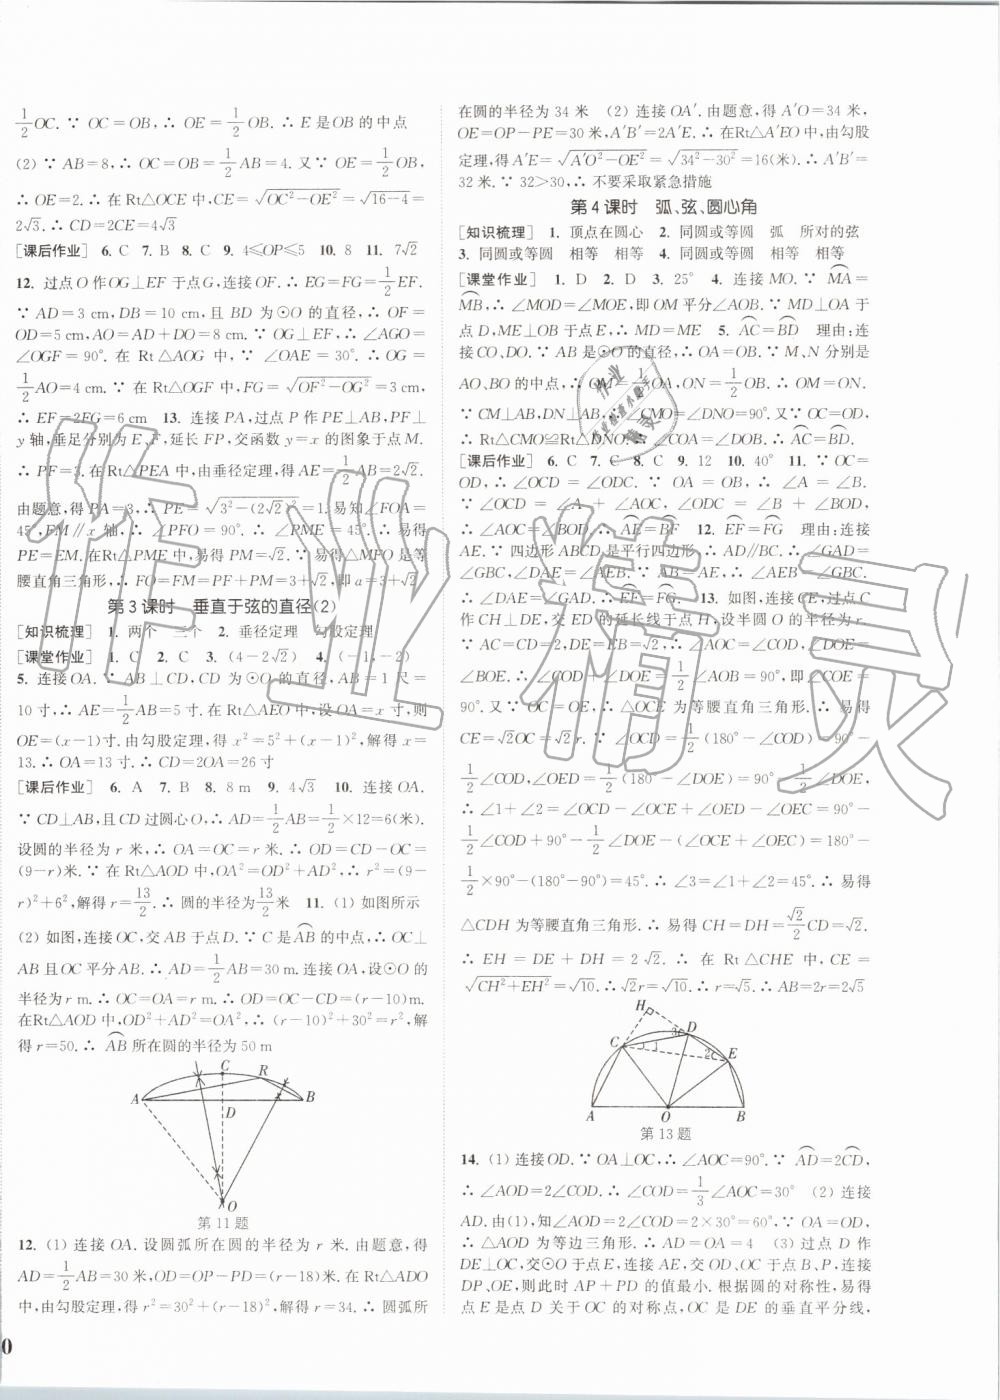 1/2 OC.∵ OC=OB,∴ OE=1/2 OB.∴ E 是OB 的中点
(2) ∵ AB=8,∴ OC=OB=1/2 AB=4. 又∵ OE=1/2 OB,
∴ OE=2.∴ 在 Rt△OCE 中,CE=√(OC²-OE²)=√(16-4)=
2√3.∴ CD=2CE=4√3
[课后作业] 6. C 7. B 8. C 9. 4≤OP≤5 10. 8 11. 7√2
12. 过点 O 作OG⊥EF 于点G,连接 OF.∴ EG=FG=1/2 EF.
∵ AD=3 cm,DB=10 cm,且 BD 为⊙O 的直径,∴ OF=
OD=5 cm,AO=AD+DO=8 cm.∵ OG⊥EF,∴ ∠AGO=
∠OGF=90°. 在 Rt△AOG 中,∵ ∠OAE=30°.∴ OG=
1/2 AO=4 cm.∴ 在 Rt△OGF 中,FG=√(OF²-OG²)=3 cm,
∴ EF=2FG=6 cm 13. 连接 PA,过点 P 作PE⊥AB,PF⊥
y 轴,垂足分别为 E、F,延长 FP,交函数 y=x 的图象于点 M.
∴ PF=3. 在 Rt△PEA 中,由垂径定理,得 AE=1/2 AB=2√2.
由题意,得 PA=3,∴ PE=√(3²-(2√2)²)=1. 易知∠FOA=
45°.FM∥x 轴,∴ ∠PFO=90°.∴ ∠PME=45°.∴ 易得
PE=EM. 在Rt△PME 中,易得 PM=√2.∴ 易得△MFO 是等
腰直角三角形.∴ FO=FM=PF+PM=3+√2,即a=3+√2
第 3 课时 垂直于弦的直径(2)
[知识梳理] 1. 两个 三个 2. 垂径定理 勾股定理
[课堂作业] 1. C 2. C 3. (4-2√2) 4. (-1,-2)
5. 连接 OA.∵ AB⊥CD,CD 为⊙O 的直径,AB=1 尺=
10 寸,∴ AE=1/2 AB=5 寸. 在 Rt△AEO 中,设 OA=x 寸,则
OE=(x-1)寸. 由勾股定理,得 x²=5²+(x-1)²,解得 x=
13.∴ OA=13 寸.∴ CD=2OA=26 寸
[课后作业] 6. A 7. B 8. 8 m 9. 4√3 10. 连接 OA.
∵ CD⊥AB,且 CD 过圆心 O,∴ AD=1/2 AB=1/2×12=6(米).
设圆的半径为 r 米,∴ OA=OC=r 米.∴ OD=CD-OC=
(9-r)米.∵ 在 Rt△AOD 中,OA²=OD²+AD²,∴ r²=(9-
r)²+6²,解得 r=13/2.∴ 圆的半径为13/2米 11. (1) 如图所示
(2) 如图,连接OC,交 AB 于点 D.∵ C 是AB⌒的中点,∴ OC⊥
AB 且 OC 平分 AB.∴ AD=1/2 AB=30 m. 连接 OA,设⊙O 的
半径为 r m.∴ OC=OA=r m.∴ OD=OC-CD=(r-10)m.
在Rt△AOD 中,OD²+AD²=OA²,∴ (r-10)²+30²=r²,解
得 r=50.∴ AB⌒ 所在圆的半径为 50 m
C R
A D B
O
第 11 题
12. (1) 连接 OA. 设圆弧所在圆的半径为 r 米. 由题意,得
AD=1/2 AB=30 米,OD=OP-PD=(r-18)米. 在Rt△ADO
中,由勾股定理,得 r²=30²+(r-18)²,解得 r=34.∴ 圆弧所
0
在圆的半径为 34 米 (2) 连接 OA′. 由题意,得 A′O=34 米,
OE=OP-PE=30 米,A′B′=2A′E.∴ 在Rt△A′EO 中,由勾股
定理,得 A′E=√(A′O²-OE²)=√(34²-30²)=16(米).∴ A′B′=
32 米.∵ 32>30,∴ 不要采取紧急措施
第 4 课时 弧、弦、圆心角
[知识梳理] 1. 顶点在圆心 2. 同圆或等圆 弧 所对的弦
3. 同圆或等圆 相等 相等 同圆或等圆 相等 相等
[课堂作业] 1. D 2. D 3. 25° 4. 连接 MO.∵ MA⌒=
MB⌒,∴ ∠MOD=∠MOE,即 OM 平分∠AOB.∵ MD⊥OA 于
点 D,ME⊥OB 于点 E,∴ MD=ME 5. AC⌒=BD⌒ 理由:连
接 CO、DO.∵ AB 是⊙O 的直径,∴ OA=OB.∵ M、N 分别是
AO、BO 的中点,∴ OM=1/2 OA,ON=1/2 OB.∴ OM=ON.
∵ CM⊥AB,DN⊥AB,∴ ∠CMO=∠DNO=90°. 又∵ OC=OD,
∴ Rt△CMO≌Rt△DNO.∴ ∠AOC=∠BOD.∴ AC⌒=BD⌒.
[课后作业] 6. C 7. C 8. C 9. 12 10. 40° 11. ∵ OC=
OD,∴ ∠OCD=∠ODC.∵ OA=OB,∴ ∠A=∠B.
∵ ∠OCD=∠A+∠AOC,∠ODC=∠B+∠BOD,
∴ ∠AOC=∠BOD.∴ AE⌒=BF⌒ 12. EF⌒=FG⌒ 理由:连接
AE.∵ 四边形 ABCD 是平行四边形,∴ AD∥BC.∴ ∠DAE=
∠GBC,∠DAE=∠GBE.
∴ ∠DAE=∠GAD. 13. 如图,连接CE,过点 C
作 CH⊥DE,交 ED 的延长线于点 H,设半圆 O 的半径为 r.
∠BOE.∴ ∠COD+∠DOE=1/2∠AOB=90°,即∠COE=
90°. 又∵ OC=OE,∴ △OCE 为等腰直角三角形.∴ 易得
CE=√2OC=√2r.∵ ∠OCD=1/2(180°-∠COD)=90°-
1/2∠COD,∠OED=1/2(180°-∠DOE)=90°-1/2∠DOE,
∴ ∠1+∠2=∠OCD-∠OCE+∠OED-∠OEC=90°-
1/2∠COD+90°-1/2∠DOE-(∠OCE+∠OEC)=180°-
1/2×90°-(180°-90°)=45°.∴ ∠3=∠1+∠2=45°.∴ 易得
△CDH 为等腰直角三角形.∴ 易得 CH=DH=√2/2 CD=√2.
∴ EH=DE+DH=2√2.∴ 在 Rt△CHE 中,CE=
√(CH²+EH²)=√10.∴ √2r=√10.∴ r=√5.∴ AB=2r=2√5
H D
C 1 3 2 E
A O B
第 13 题
14. (1) 连接 OD.∵ OA⊥OC,∴ ∠AOC=90°.∵ AD⌒=2CD⌒,
∴ ∠AOD=2∠COD.∴ ∠COD=1/3∠AOC=30° (2) 连接
AD. 由(1),知∠AOD=2∠COD=2×30°=60°,∵ OA=OD,
∴ △AOD 为等边三角形.∴ AD=OA=4 (3) 过点 D 作
DE⊥OC,交⊙O 于点 E,连接 AE,交 OD、OC 于点 B、P,连接
DP、OE,则此时 AP+PD 的值最小. 根据圆的对称性,易得
点 E 是点 D 关于 OC 的对称点,OC 是 DE 的垂直平分线,
作业精灵